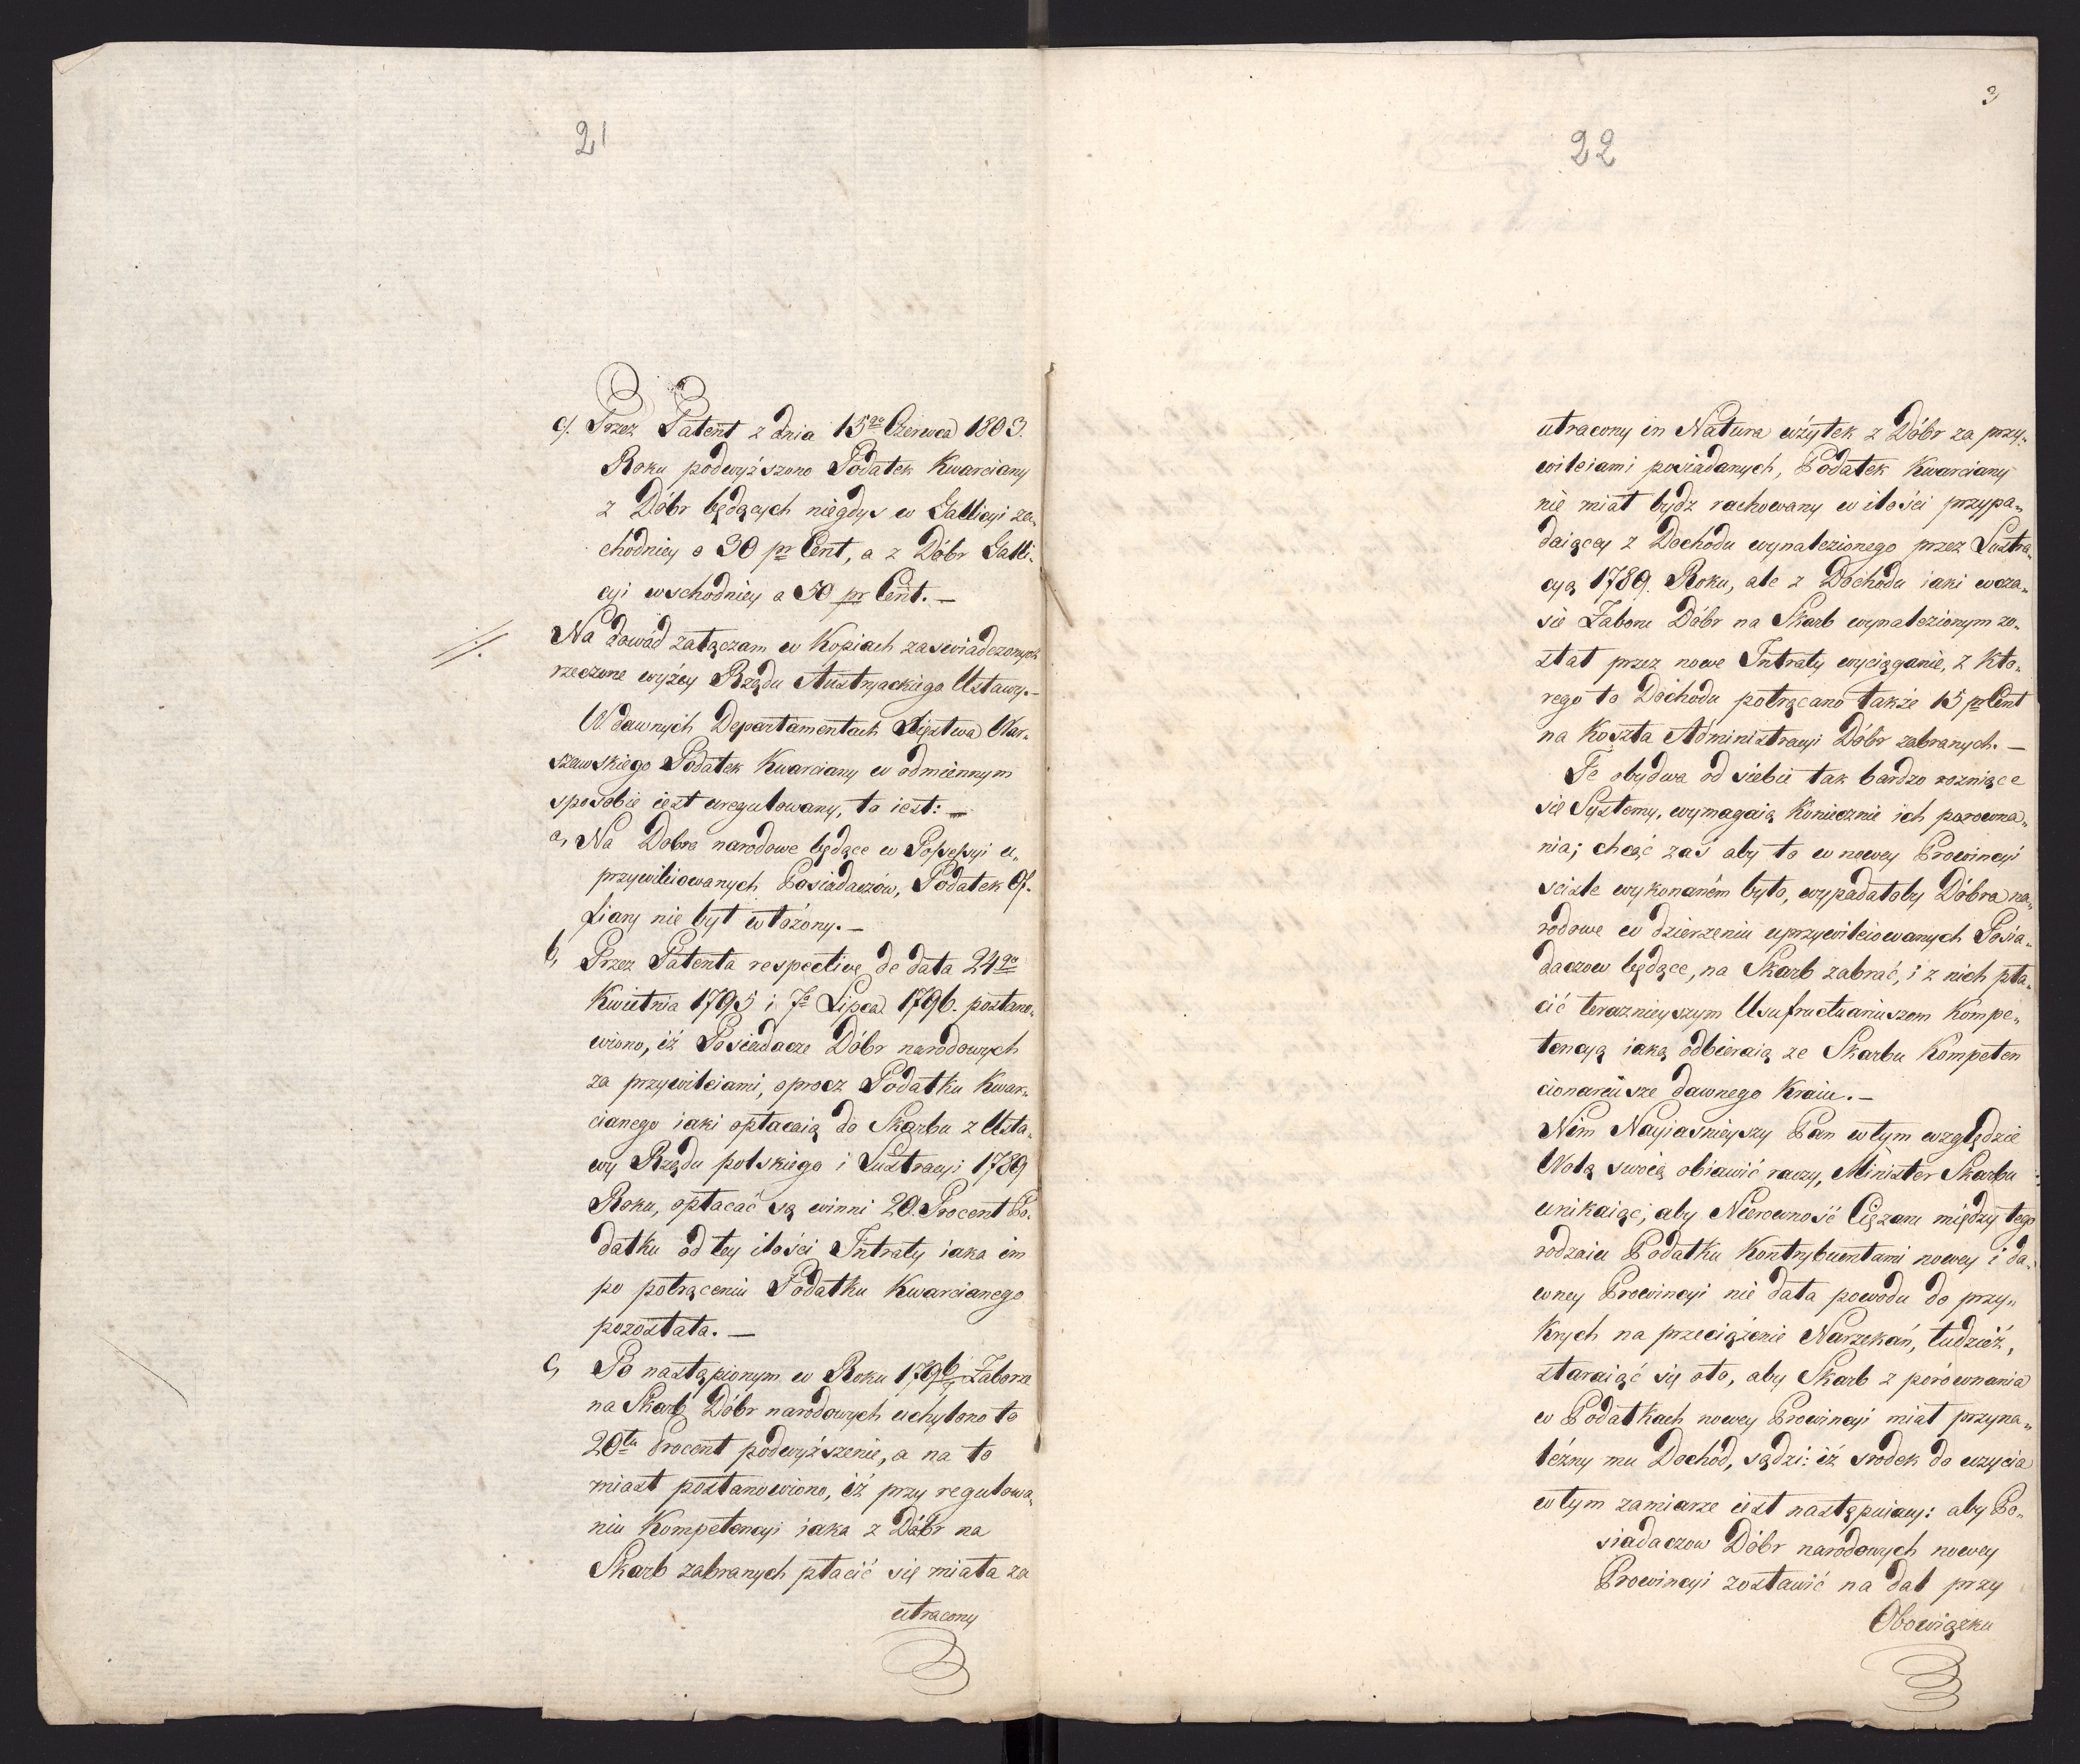 21
c). Przez Patent z dnia 15go Czerwca 1803.
Roku podwyższono Podatek Kwarciany
z Dóbr będących niegdys w Gallicyi za„
chodniey o 30 pr Cent, a z Dóbr Galli„
cyi wschodniey a 50 pr Cent. —
·//· Na dowód załączam w Kopiach zaswiadczonych
rzeczone wyżey Rządu Austryackiego Ustawy. —
W dawnych Departamentach Xięztwa War„
szawskiego Podatek Kwarciany w odmiennym
sposobie iest uregulowany, to iest: —
a, Na Dobra narodowe będące w Possessyi u„
przywileiowanych Posiadaczów, Podatek Of„
fiary nie był włożony. —
b, Przez Patenta respective de data 24go
Kwietnia 1795 i 7o Lipca 1796. postano„
wiono, iż Posiadacze Dóbr narodowych
za przywileiami, oprocz Podatku Kwar„
cianego iaki opłacaią do Skarbu z Usta„
wy Rządu polskiego i Lustracyi 1789
Roku, opłacać są winni 20. Procent Po„
datku od tey ilości Intraty iaka im
po potrąceniu Podatku Kwarcianego
pozostała. —
c, Po nastąpionym w Roku 1796/7 Zaborze
na Skarb Dóbr narodowych uchylono to
20tu Procent podwyższenie, a na to
miast postanowiono, iż przy regulowa„
niu Kompetencyi iaka z Dóbr na
Skarb zabranych płacić się miała za
utracony
3
22
utracony in Natura użytek z Dóbr za przy„
wileiami posiadanych, Podatek Kwarciany
nie miał bydz rachowany w ilości przypa„
daiącey z Dochodu wynalezionego przez Lustra„
cyą 1789. Roku, ale z Dochodu iaki w cza„
sie Zaboru Dóbr na Skarb wynalezionym zo„
stał przez nowe Intraty wyciąganie, z Kto„
rego to Dochodu potrącano także 15 pr Cent
na Koszta Administracyi Dóbr zabranych. —
Te obydwa od siebie tak bardzo rozniące
się Systemy, wymagaią Koniecznie ich porowna„
nia; chcąc zaś aby to w nowey Prowincyi
scisle wykonaném było, wypadałoby Dóbra na„
rodowe w dzierzeniu uprzywileiowanych Posia„
daczow będące, na Skarb zabrać, i z nich pła„
cić terazniejszym Usufructuariuszom Kompe„
tencyą iaką odbieraią ze Skarbu Kompeten
cionariusze dawnego Kraiu. —
Nim Nayiasnieyszy Pan w tym względzie
Wolą swoią obiawić raczy, Minister Skarbu
unikaiąc, aby Nierowność Ciężaru między tego
rodzaiu Podatku Kontrybuentami nowey i da„
wney Prowincyi nie dała powodu do przy„
krych na przeciążenie Narzekań, tudzież,
staraiąc się oto, aby Skarb z porównania
w Podatkach nowey Prowincyi miał przyna„
leżny mu Dochód, sądzi: iż srodek do użycia
w tym zamiarze iest następuiący: aby Po„
siadaczow Dóbr narodowych nowey
Prowincyi zostawić na dal przy
Obowiązku